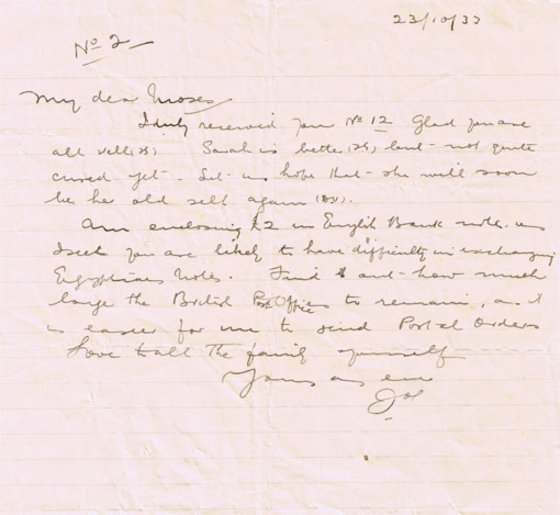 23/10/33
No 2
My dear Moses
I duly received your No 12 Glad you are
all well (25) Sarah is better (25), but not quite
cured yet. Let us hope that she will soon
be her old self again (DV).
Am enclosing £2 in English Bank notes as
I see you are likely to have difficulty in exchanging
Egyptian Notes. Find out how much
longer the British Post Office is to remain, as it
is easier for me to send Postal Orders
Love to all the family & yourself
Yours as ever
Joe